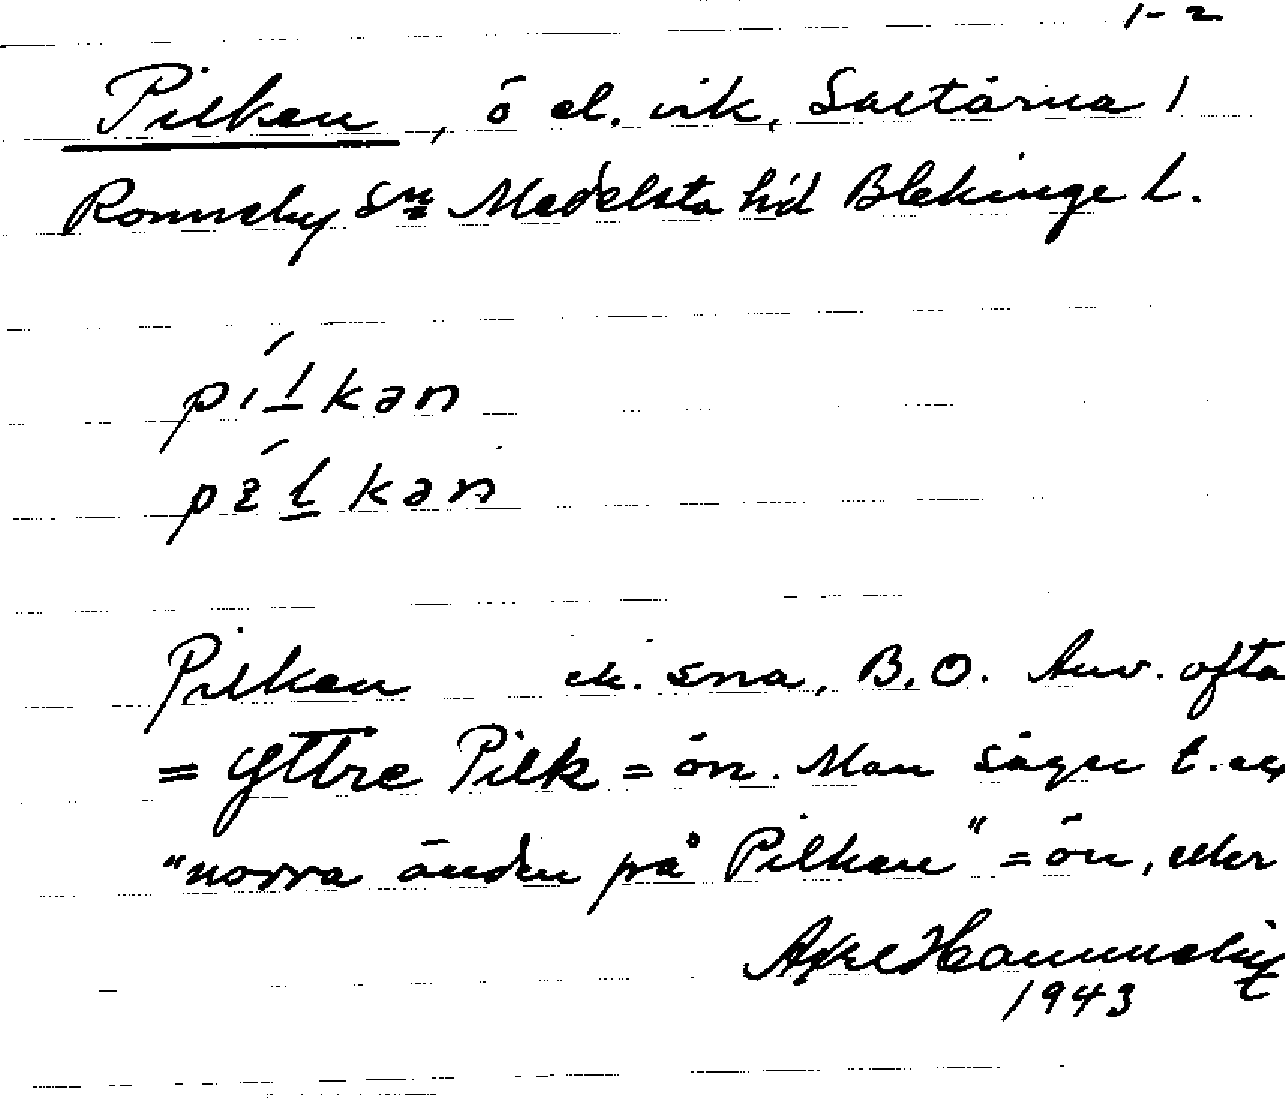 1-2
Pilken, ö el. vik, Saltärna 1
Ronneby Sn Medelsta hd Blekinge L.
pilkən
pélkən
Pilken ek. sna, B.O. Anv. ofta
= Yttre Pilk = ön. Man säger t.ex
"norra änden på Pilken" = ön, eller
Axel
1943